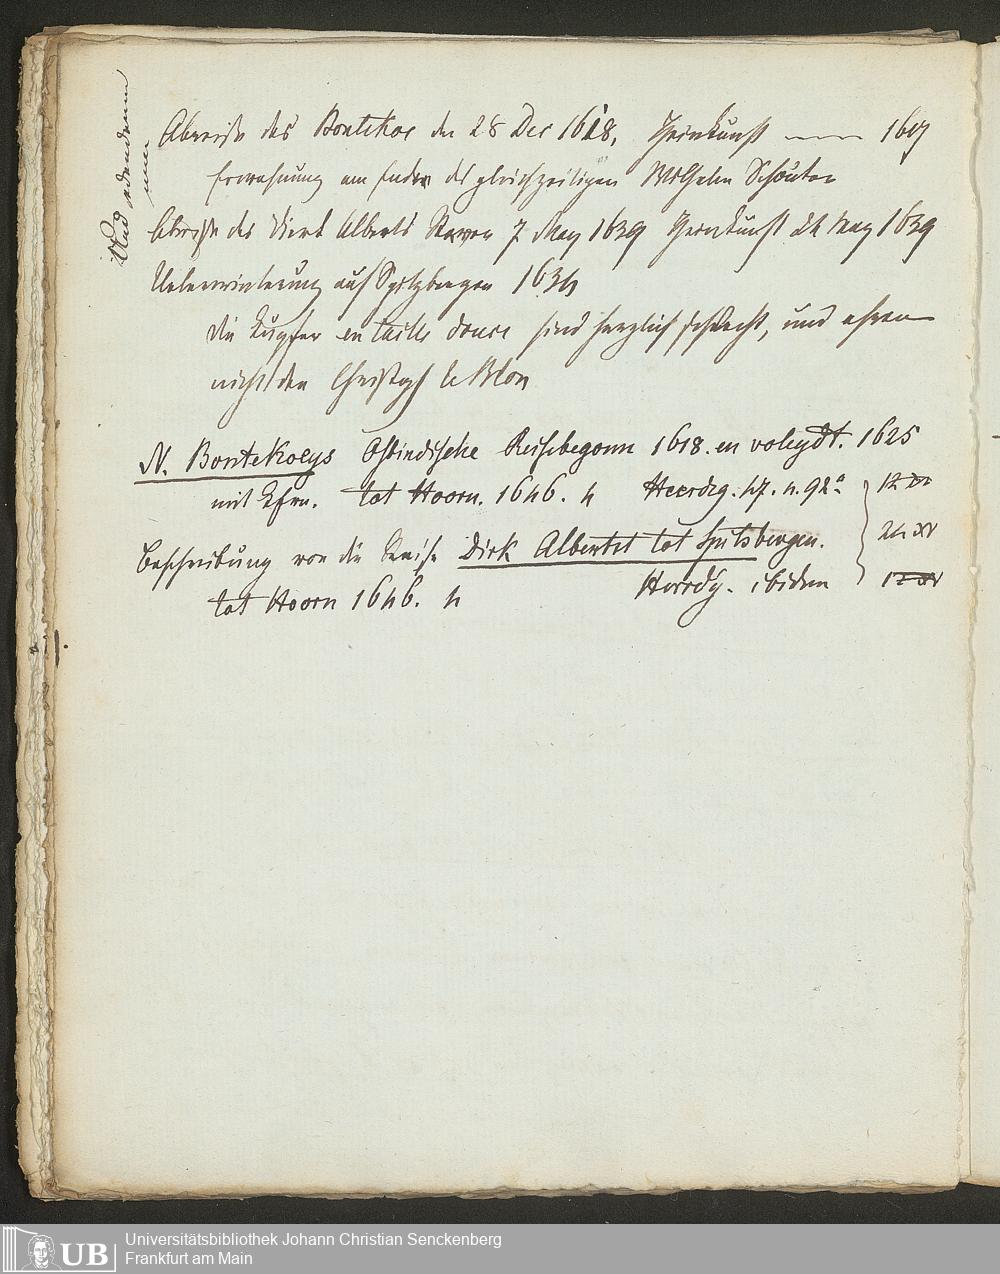 Abreise des Bontekoe den 28 Dec 1618, Heimkunft —— 1619
Erwehnung am Ende des gleichzeitigen Wilhelm Schouten
Abreise des Dierk Alberts Raven 7 May 1639 Heimkunft 24 May 1639
Ueberwinterung auf Spitzbergen 1634
die Kupfer en taille douce sind herzlich schlecht, und ehren
nicht den Christoph le Blon
N. Bontekoeys Ostindische Reise begonn 1618. en voleydt. 1625
mit Kfrn. tot Hoorn. 1646. 4 Heerdeg. 47. n. 92.
Beschreibung von die Raise Dirk Albertet tot Spitsbergen.
tot Hoorn 1646. 4 Heerdg. ibidem
Universitätsbibliothek Johann Christian Senckenberg
UB Frankfurt am Main